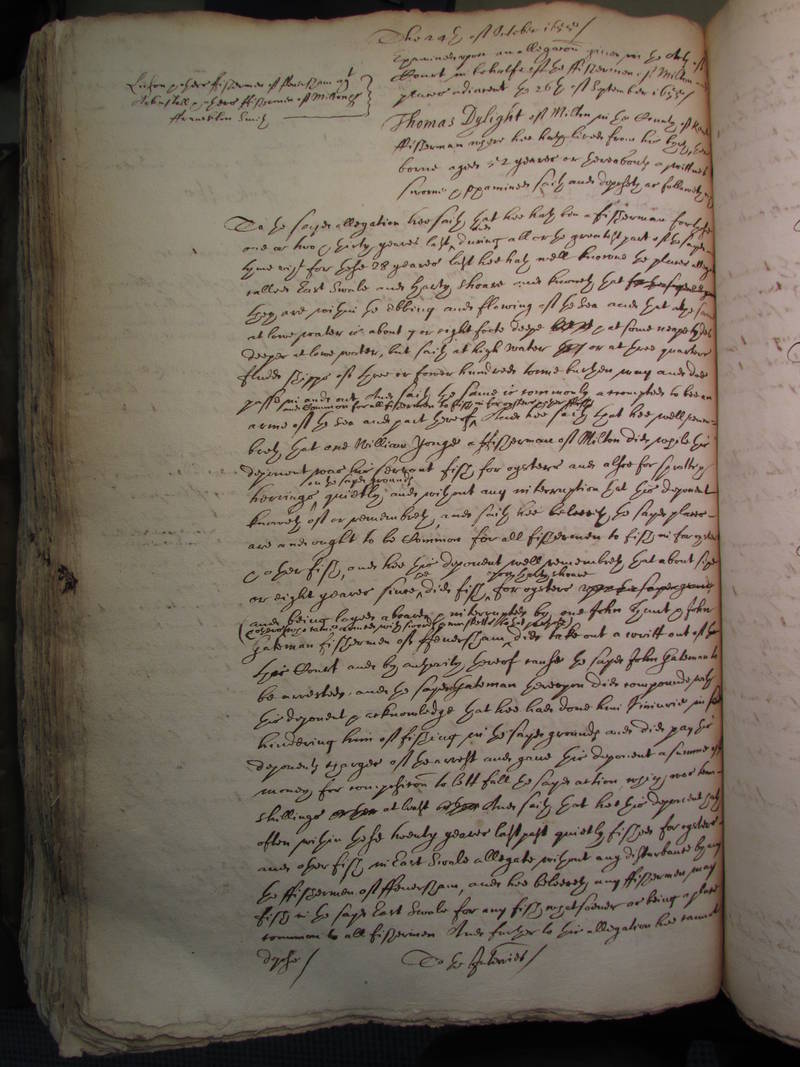 The 24th of October 1655/
Examined upon an allegation given in the Acts of
Court on behalfe of the ffishermen of Milton and
places adiacent the 26th of September 1655/
others ffishermen of ffeversham agt
Tabnstall & others ffishermen of Milton
ffrancklin Smith
Thomas Dylight of Milton in the County of Kent
ffisherman where hee hath lived from his byrth, there
borne aged 52 yeares or thereabouts a wittnes
sworne & examined saith and deposeth as followeth
To the sayd allegation hee saith that hee hath bin a fisherman for these
one or two & thirty yeares last, during all or the greatest part of the sayd
tyme vizt for these 28 yeares last hee hath well knowne the places allegate
called East Swale and Harty shoare and knoweth that
they are within the ebbing and flowing of the Sea and that the same
at lowe water is about 7 or eight foote deepe & at some neape tydes
deeper at lowe water, but saith at high water or at three quarters
fludd shipps of three or fower hundred tonne burthen may and doe
passe in and out, And saith the same is commonly accompted to bee an
and Common for all fishermen to fish in for oysters & other fish
arme of the Sea and part thereof And hee saith that hee well remem-
breth that one William Yonge a ffisherman of Milton did while this
deponent was his servant fish for oysters and alsoe for spratts &
on the sayd grounds
herrings quietly and without any interruption that this deponent
knoweth of or remembreth, and saith hee beleeveth the sayd places
are and ought to be Common for all fishermen to fish in for oysters
& other fish, and hee this deponent well remembreth that about six
hee
neere Harty shoare
or eight yeares since did fish for oysters
and being layed aboard & interrupted by one John Hunt & John
Gateman fishermen of ffeversham, did take out a writt out of
this Court and by authority thereof cause the sayd John Gateman to
be arrested, and the sayd Gateman thereupon did compound with
this deponent & acknowledge that hee had done him Iniurie in
hindering him of fishing in the sayd grounds and did pay this
deponents charges of the arrest and gave this deponent a summe of
money for composition to lett fall the sayd action which was tenn
shillings at least And saith that hee this deponent hath
often within these twenty yeares last past quietly fished for oysters
and other fish in East Swale allegate without any disturbance by any
the ffishermen of ffeversham, and hee beleeveth any ffishermen may
fish in the sayd East Swale for any fish whatsoever as being a place
common to all fishermen And further to this allegation hee cannot
depose/
To the Interries/